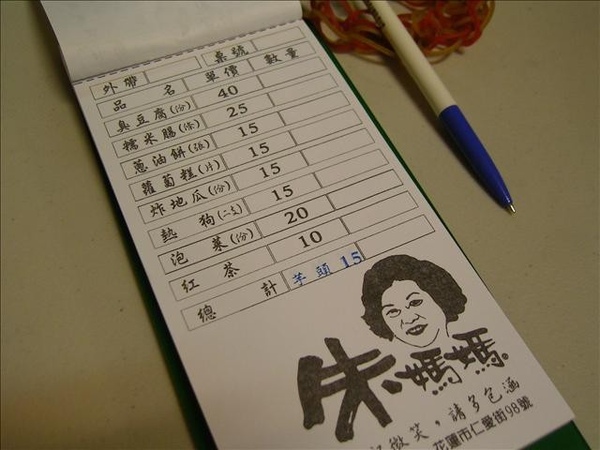 外帶 票號
品名 單價 數量
臭豆腐(份) 40
糯米腸(條) 25
蔥油餅(張) 15
蘿蔔糕(片) 15
炸地瓜(份) 15
熱狗(二支) 15
泡菜(份) 20
紅茶 10
總計 芋頭 15
朱媽媽
微笑,請多包涵
花蓮市仁愛街98號